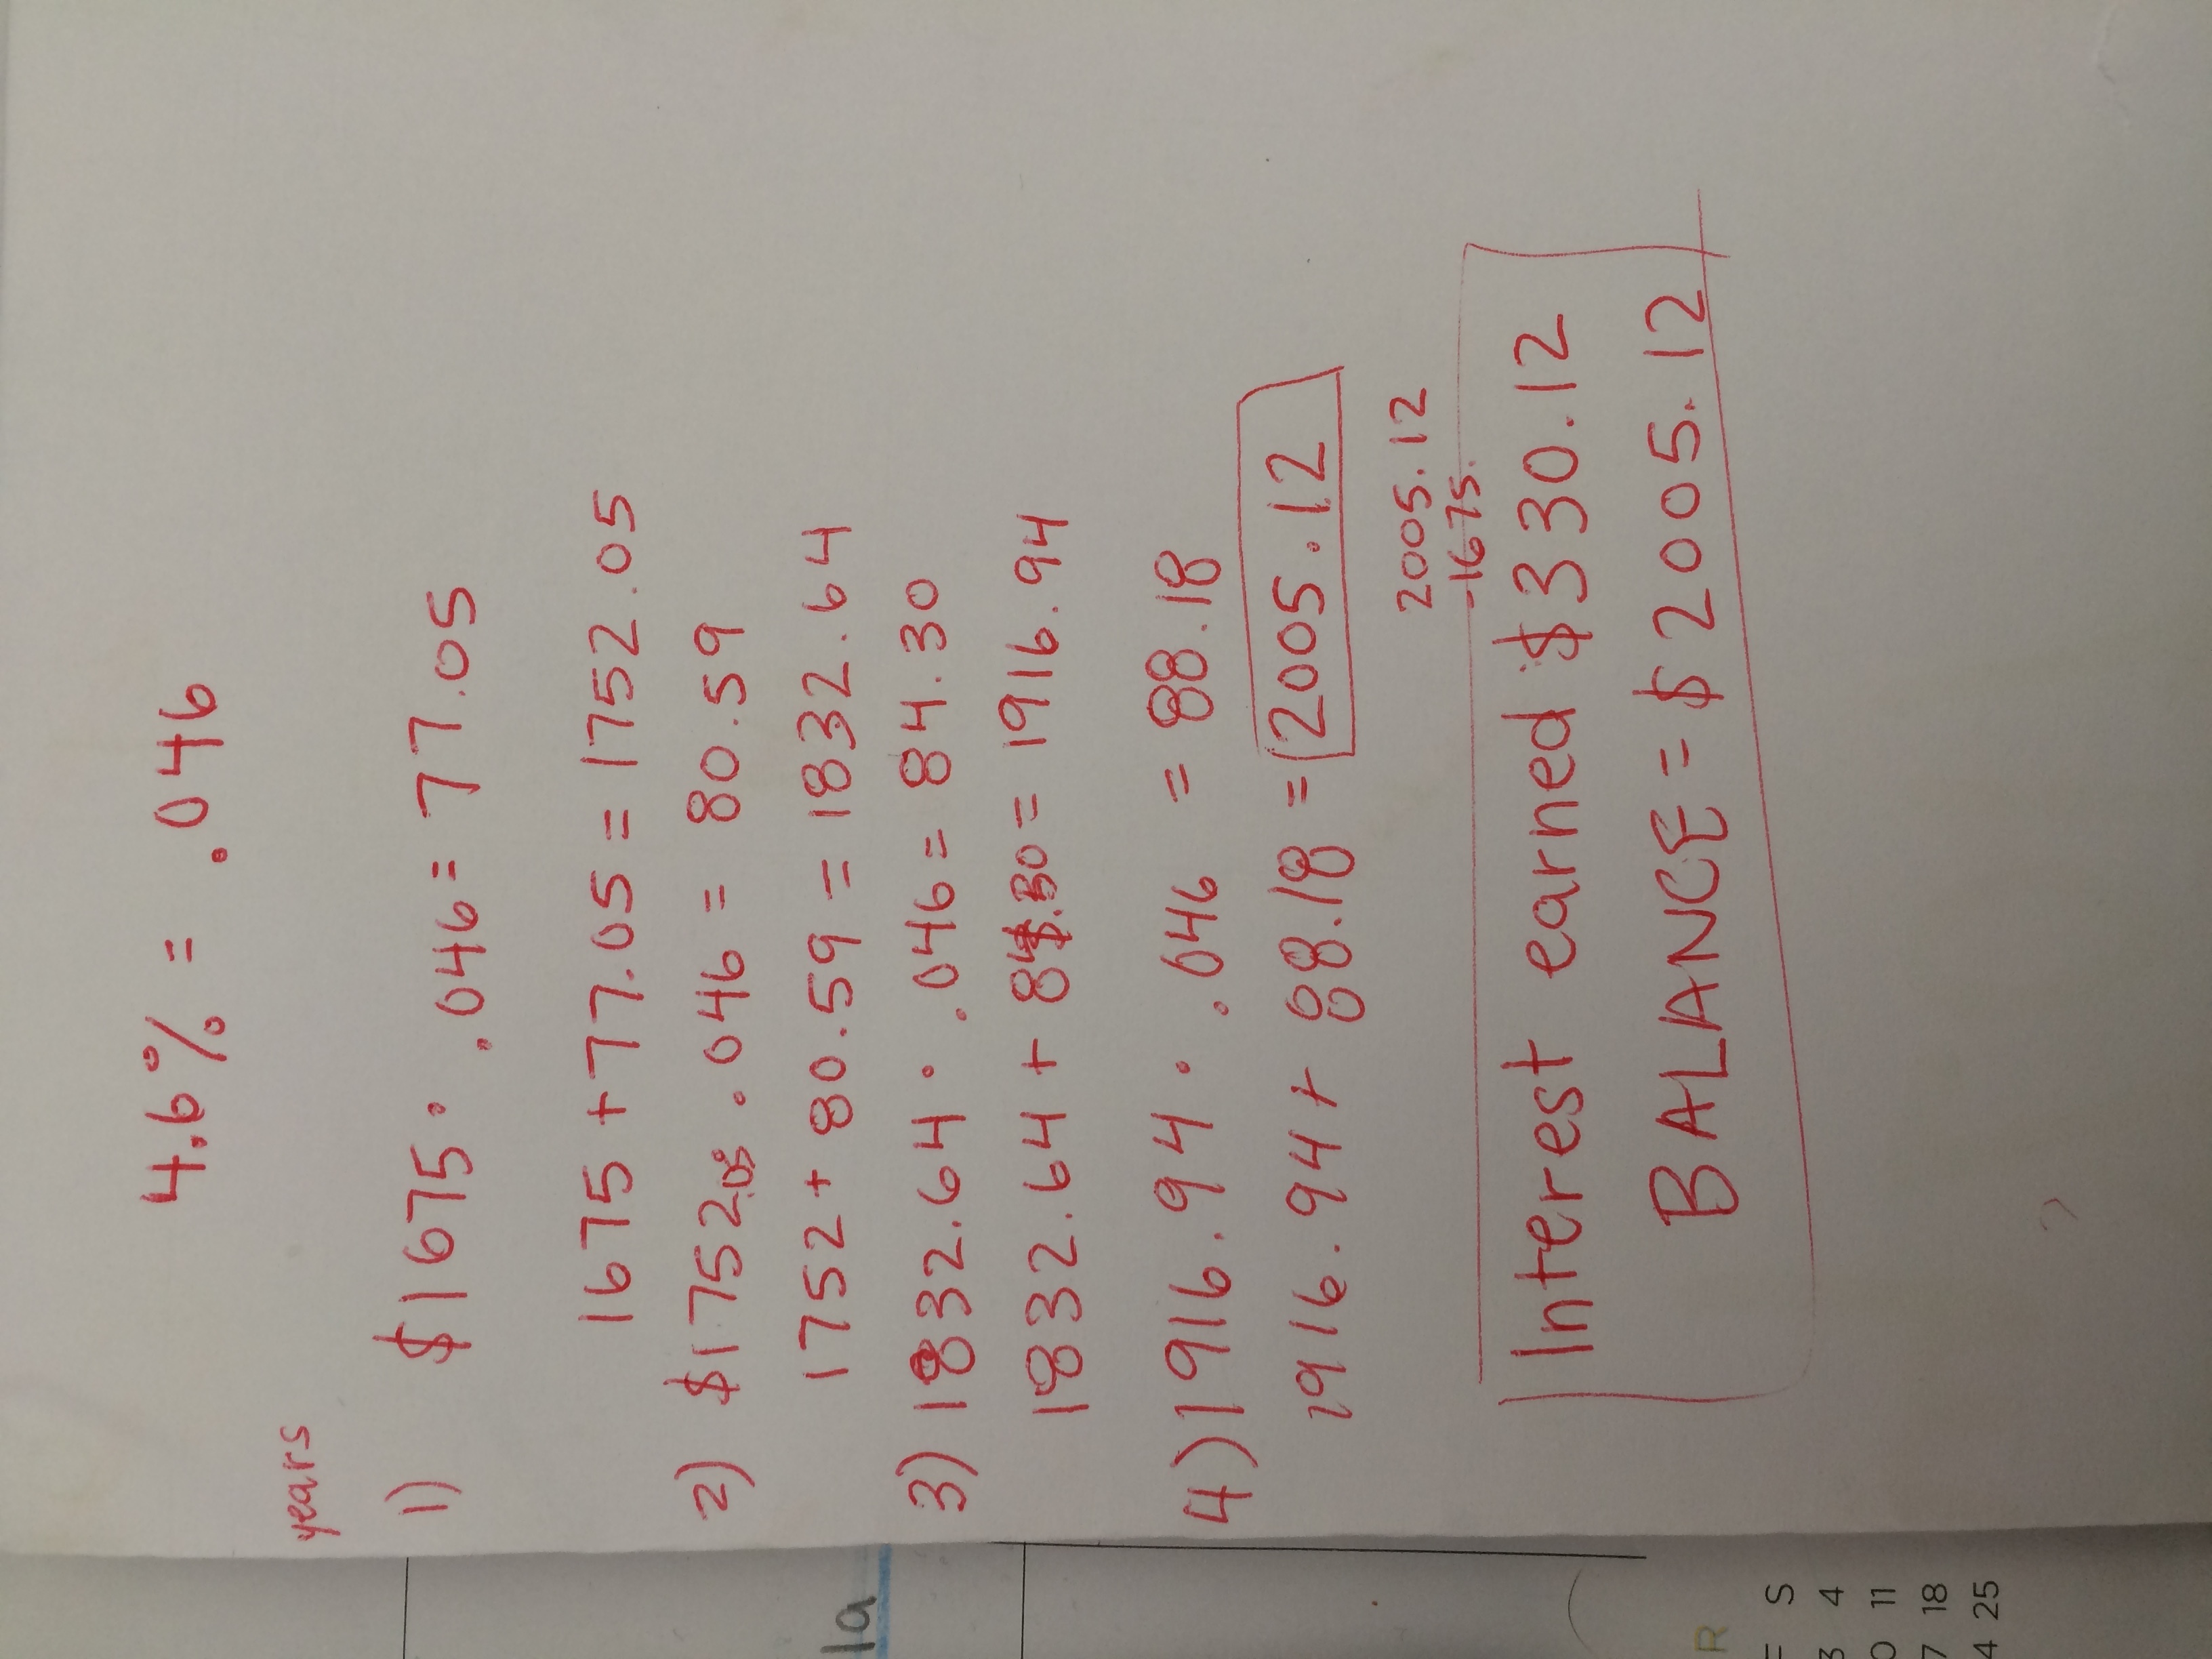 4.6% = .046
years
1) $1675 · .046 = 77.05
1675 + 77.05 = 1752.05
2) $1752.05 · .046 = 80.59
1752 + 80.59 = 1832.64
3) 1832.64 · .046 = 84.30
1832.64 + 84.30 = 1916.94
4) 1916.94 · .046 = 88.18
1916.94 + 88.18 = 2005.12
2005.12
-1675.
Interest earned $330.12
BALANCE = $2005.12
la
R
F S
3 4
0 11
7 18
4 25